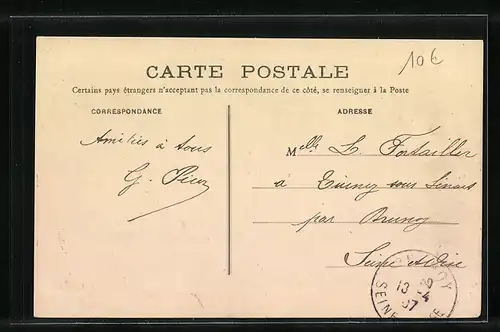 10€
CARTE POSTALE
Certains pays étrangers n'acceptant pas la correspondance de ce côté, se renseigner à la Poste
CORRESPONDANCE
ADRESSE
Amitiés à tous
G.
Melle L. Fortailler
à sous Sénart
par Brunoy
Seine et Oise
13 -4
07
SEINE